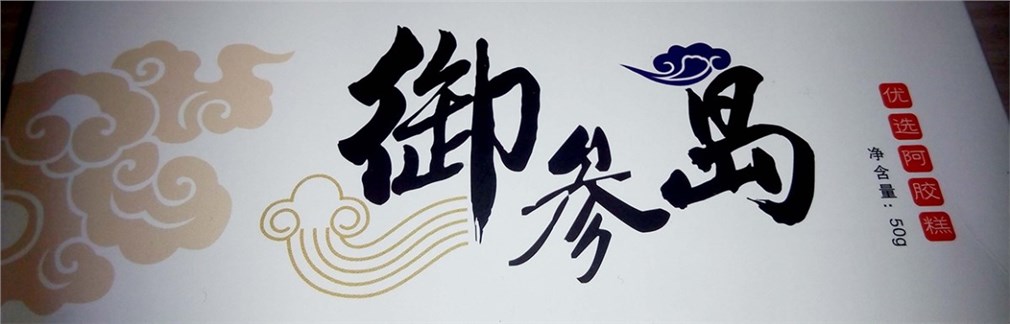 御参岛
优选阿胶糕
净含量：50g